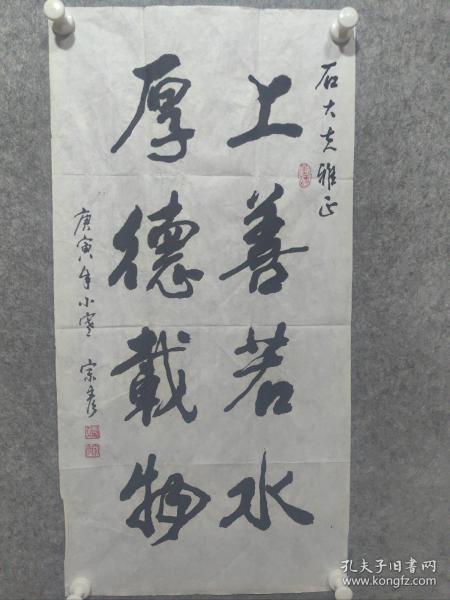 石大夫雅正
上善若水
厚德載物
庚寅年小寒 宗彦
孔夫子旧书网
www.kongfz.com